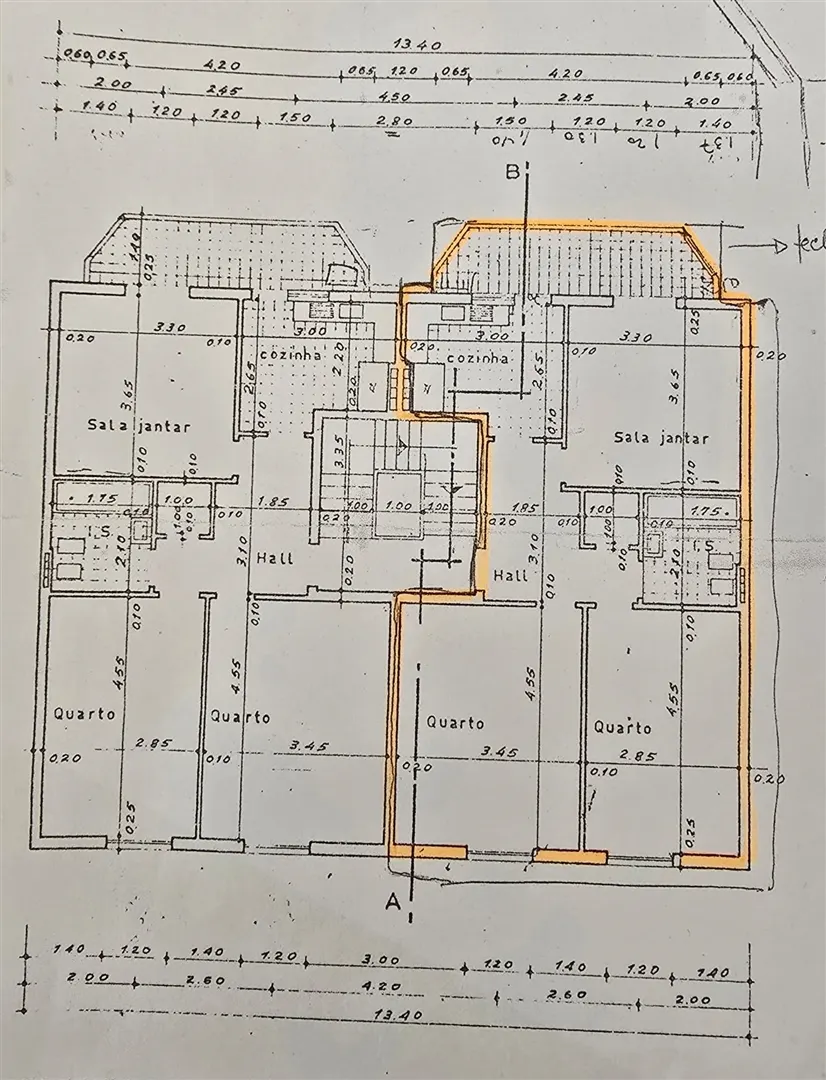 13.40
0.60 0.65 4.20 0.65 1.20 0.65 4.20 0.65 0.60
2.00 2.45 4.50 2.45 2.00
1.40 1.20 1.20 1.50 2.80 1.50 1.20 1.20 1.40
1,40 1.30 1.20 1.37
B
1.10
0.25
0.20 3.30 0.10 3.00 0.20 3.00 0.10 3.30 0.25 0.20
cozinha 2.20 cozinha
3.65 2.65 0.20 2.65 3.65
0.10 0.10
Sala jantar Sala jantar
3.35
0.10 0.10 0.10 0.10
1.75 0.10 1.00 0.10 1.85 0.20 1.00 1.00 1.00 0.20 1.85 0.10 1.00 0.10 1.75
1.00 0.10 1.00 0.10
I.S. I.S.
2.10 3.10 3.10 2.10
Hall Hall
0.20
0.10 0.10 0.10 0.10
4.55 4.55 4.55 4.55
Quarto Quarto Quarto Quarto
0.20 2.85 0.10 3.45 0.20 3.45 0.10 2.85 0.20
0.25 0.25
A
1.40 1.20 1.40 1.20 3.00 1.20 1.40 1.20 1.40
2.00 2.60 4.20 2.60 2.00
13.40